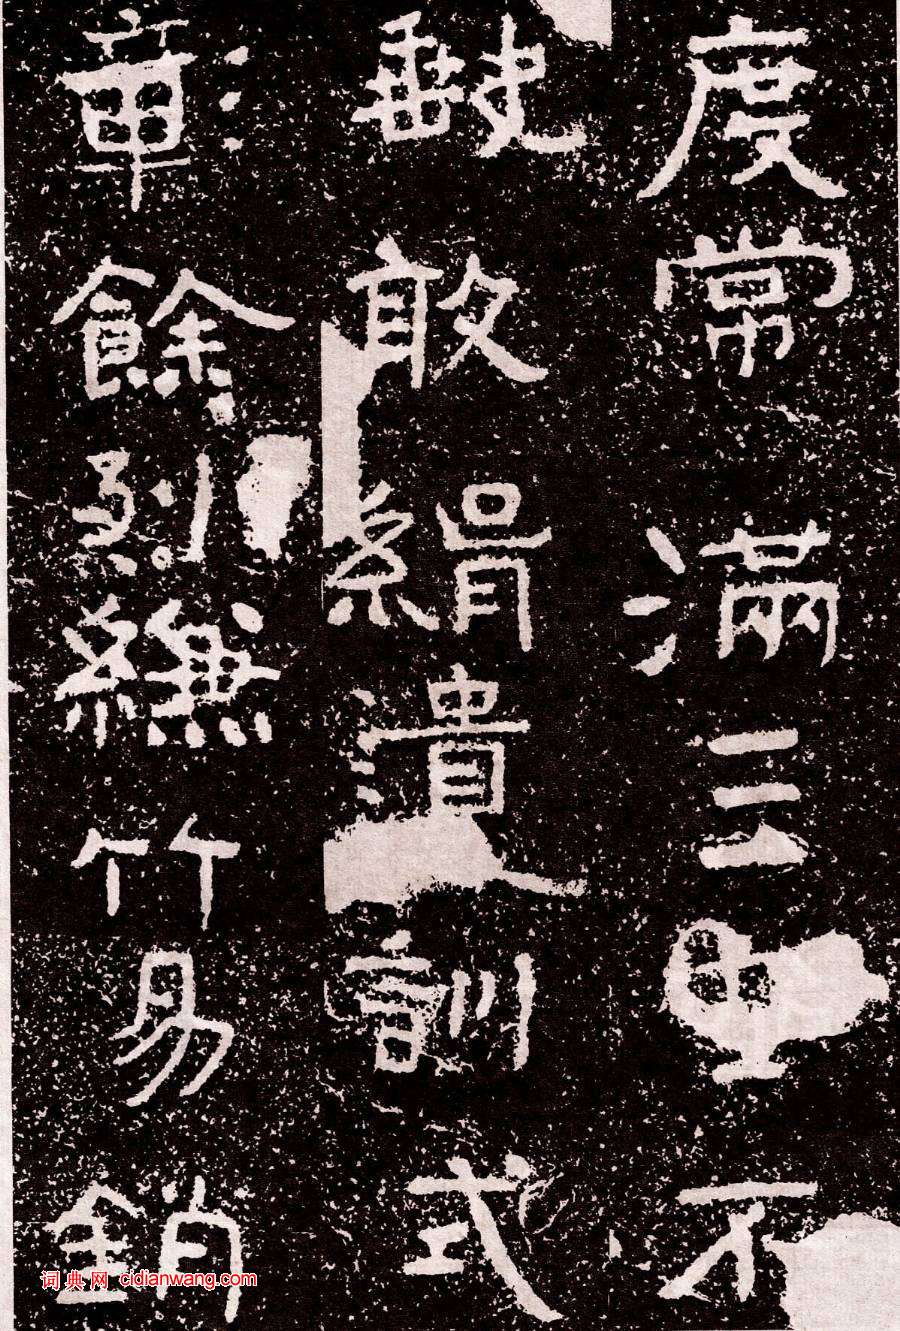 度常滿三不
缺敢緝遺訓式
彰餘烈縑竹易銷
词典网 cidianwang.com